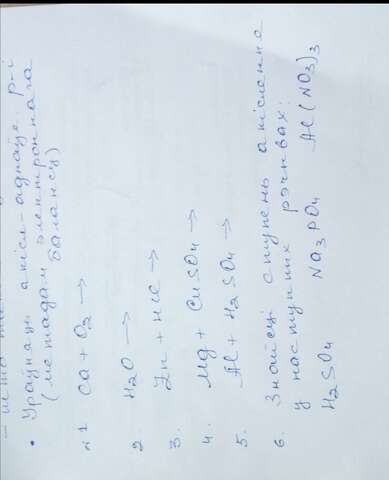 • Ураўняць акісл-аднаўл. р-і
(метадам электроннага
балансу)
№1 Ca + O₂ →
2. H₂O →
3. Zn + HCl →
4. Mg + CuSO₄ →
5. Al + H₂SO₄ →
6. Знайсці ступень акіслення
у наступных рэчывах:
H₂SO₄ Na₃PO₄ Al(NO₃)₃